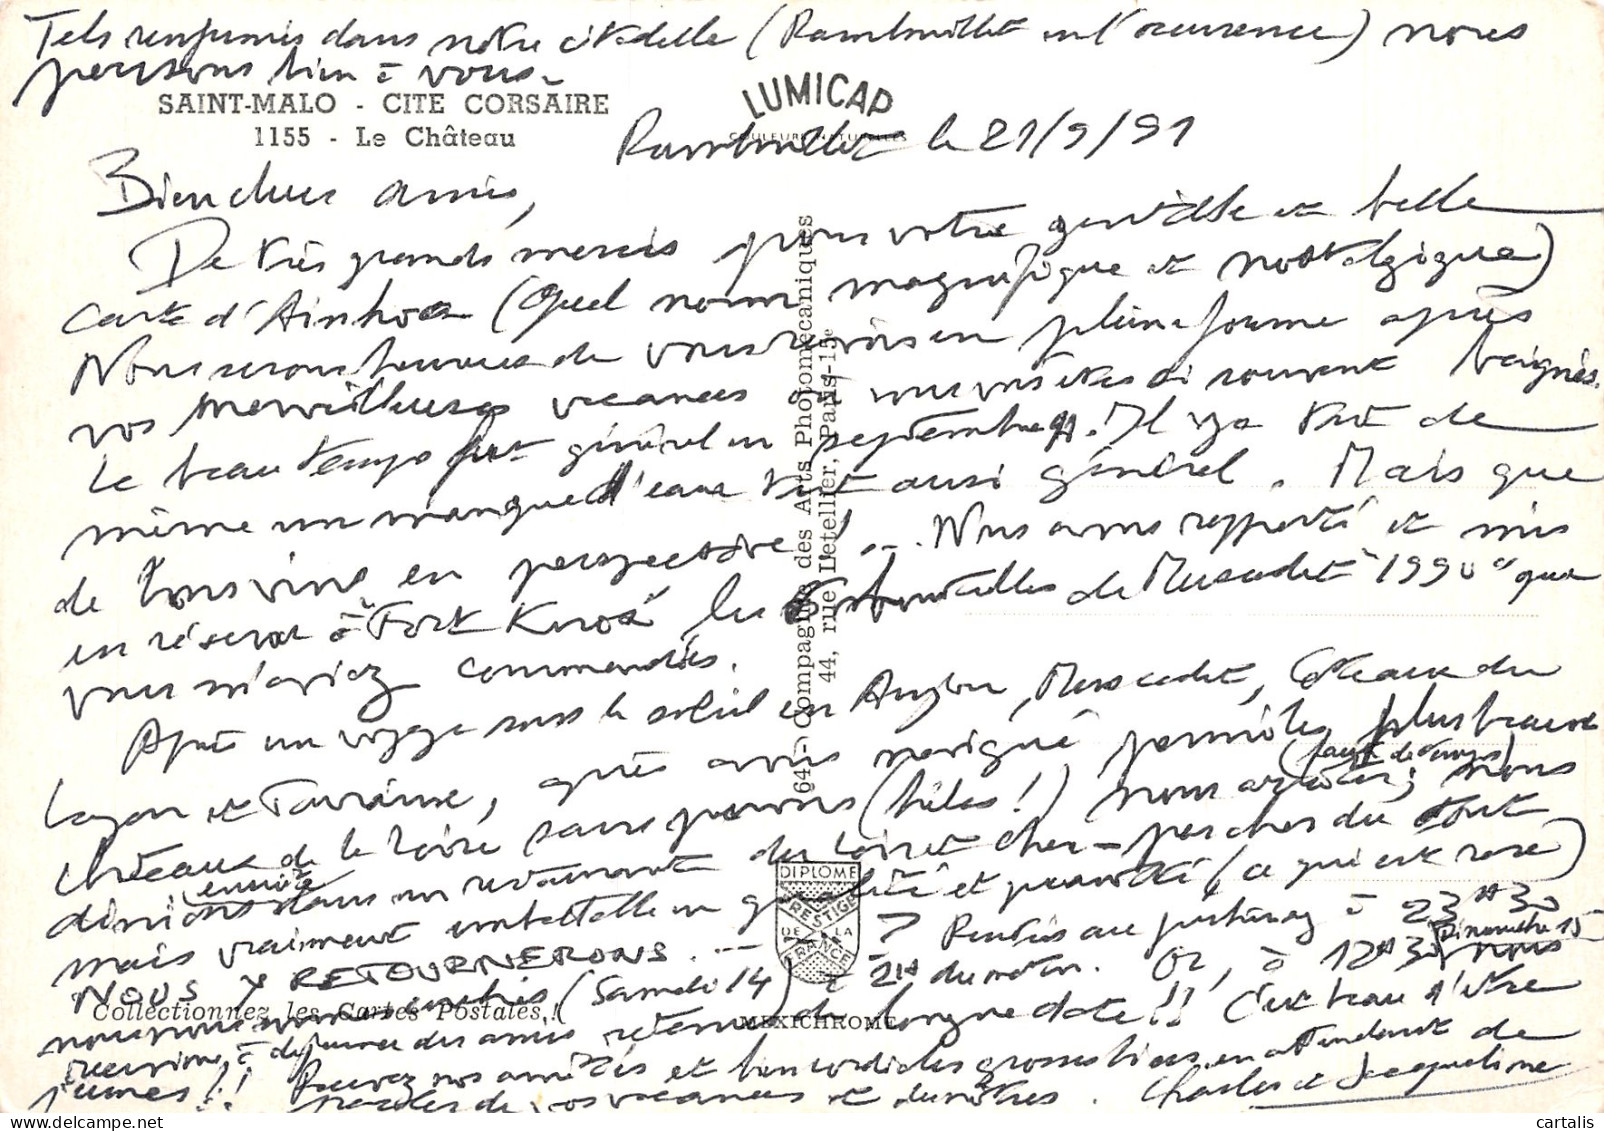 Tels renfermés dans notre citadelle (Rambouillet en l'occurence) nous
pensons bien à vous.
SAINT-MALO - CITE CORSAIRE
1155 - Le Château
LUMICAP
COULEURS NATURELLES
Rambouillet le 21/9/91
Bien chers amis,
De très grands mercis pour votre gentille et belle
carte d'Ainhoa (Quel nom magnifique et nostalgique)
Nous serons heureux de vous revoir en pleine forme après
vos merveilleuses vacances où vous vous êtes si souvent baignés.
Le beau temps fut général en septembre. Il y a eu de
même un manque d'eau tout aussi général. Mais que
de bons vins en perspective! ... Nous avons rapporté et mis
en réserve à "Fort Knox" les bouteilles de Muscadet "1990" que
vous m'aviez commandées.
Après un voyage sous le soleil en Anjou, Muscadet, Côteaux du
Layon et Touraine, après avoir navigué parmi les plus beaux
(faute de temps)
châteaux de la Loire sans pouvoir (hélas!) nous arrêter, nous
dinions dans un restaurant du Loir et Cher - pas cher du tout
ensuite
mais vraiment imbattable en qualité et quantité (ce qui est rare)
NOUS Y RETOURNERONS. ... Rentrés au à 23H30
nous nous sommes couchés (Samedi 14) à 2H du matin. Or, à 12H30 nous
Dimanche 15
recevions à déjeuner des amis retenus de longue date!! C'est beau d'être
jeunes!! Recevez nos amitiés et bien cordiales grosses bises en attendant de
parler de vos vacances et des nôtres. Charles et Jacqueline
64 - Compagnie des Arts Photomécaniques
44, rue Letellier, Paris-15e
DIPLOME
PRESTIGE
DE LA
FRANCE
Collectionnez les Cartes Postales!
MEXICHROME
delcampe.net
cartalis